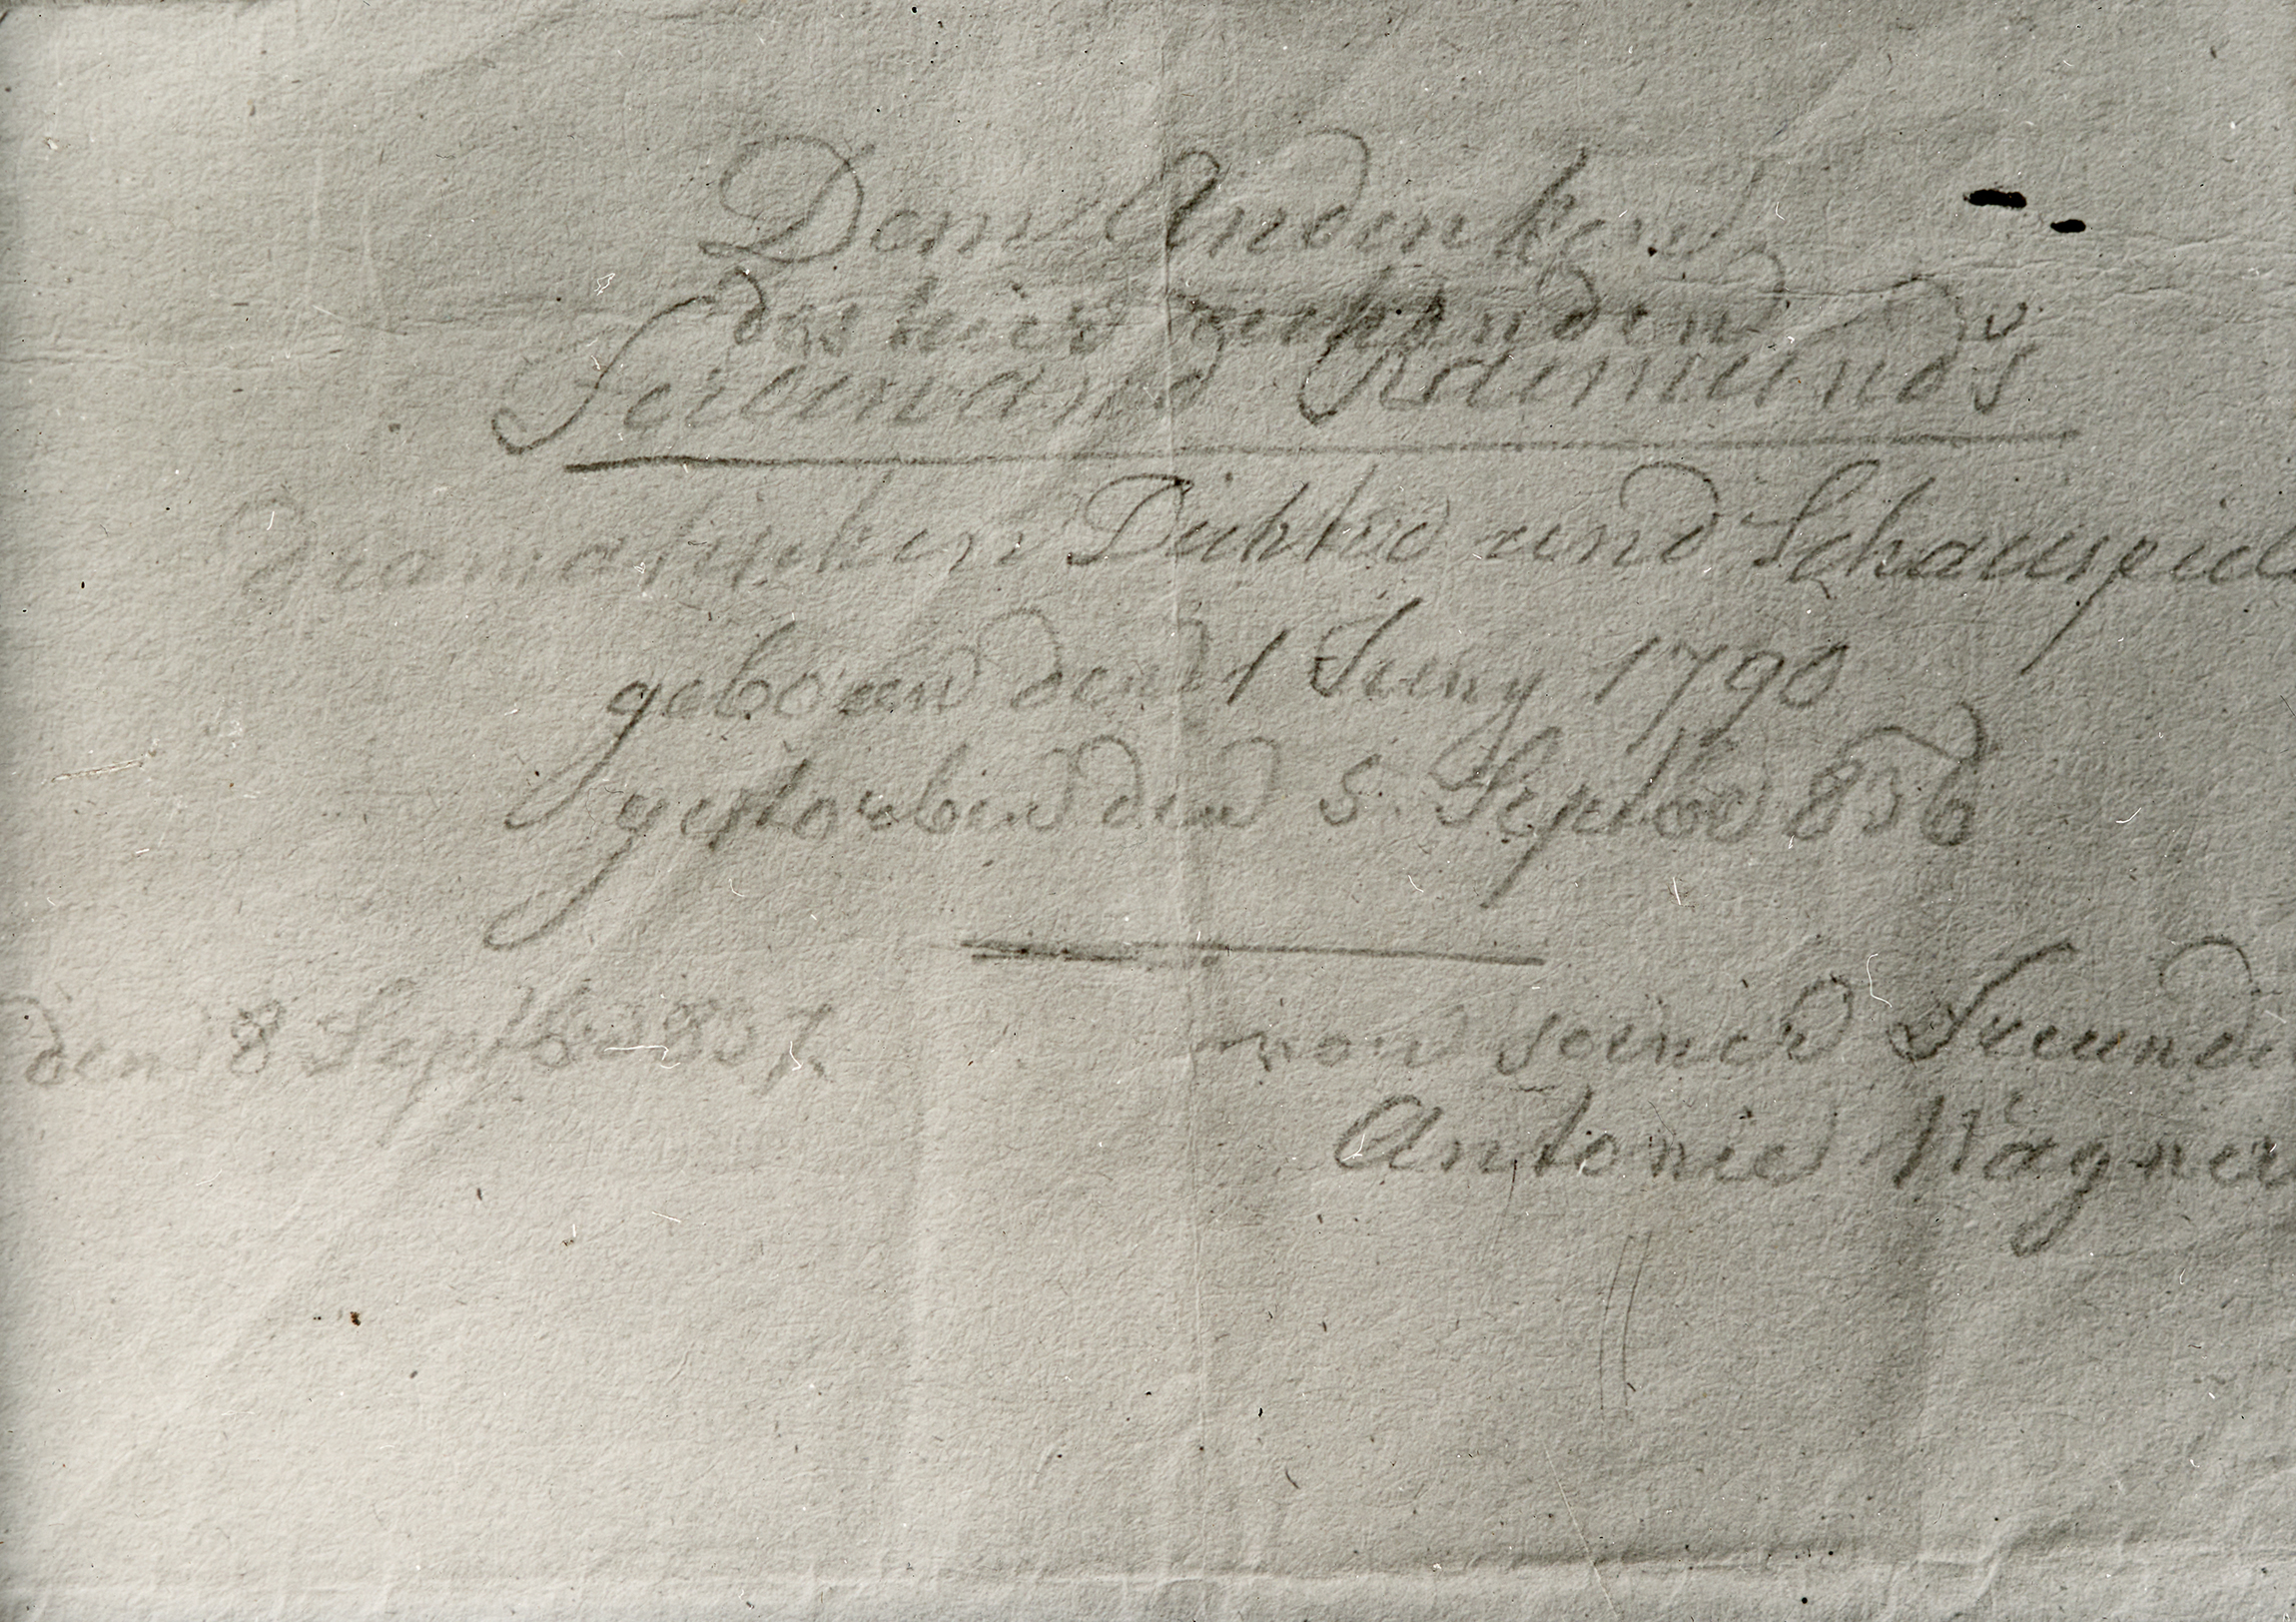 Dem Andenken
des hier ruhenden
Ferdinand Raimunds
dramatischen Dichter und Schauspiel
geboren den 1 Juny 1790
gestorben den 5. Septbr 836
den 8 Septbr 837.
von seiner Freundi
Antonie Wagner